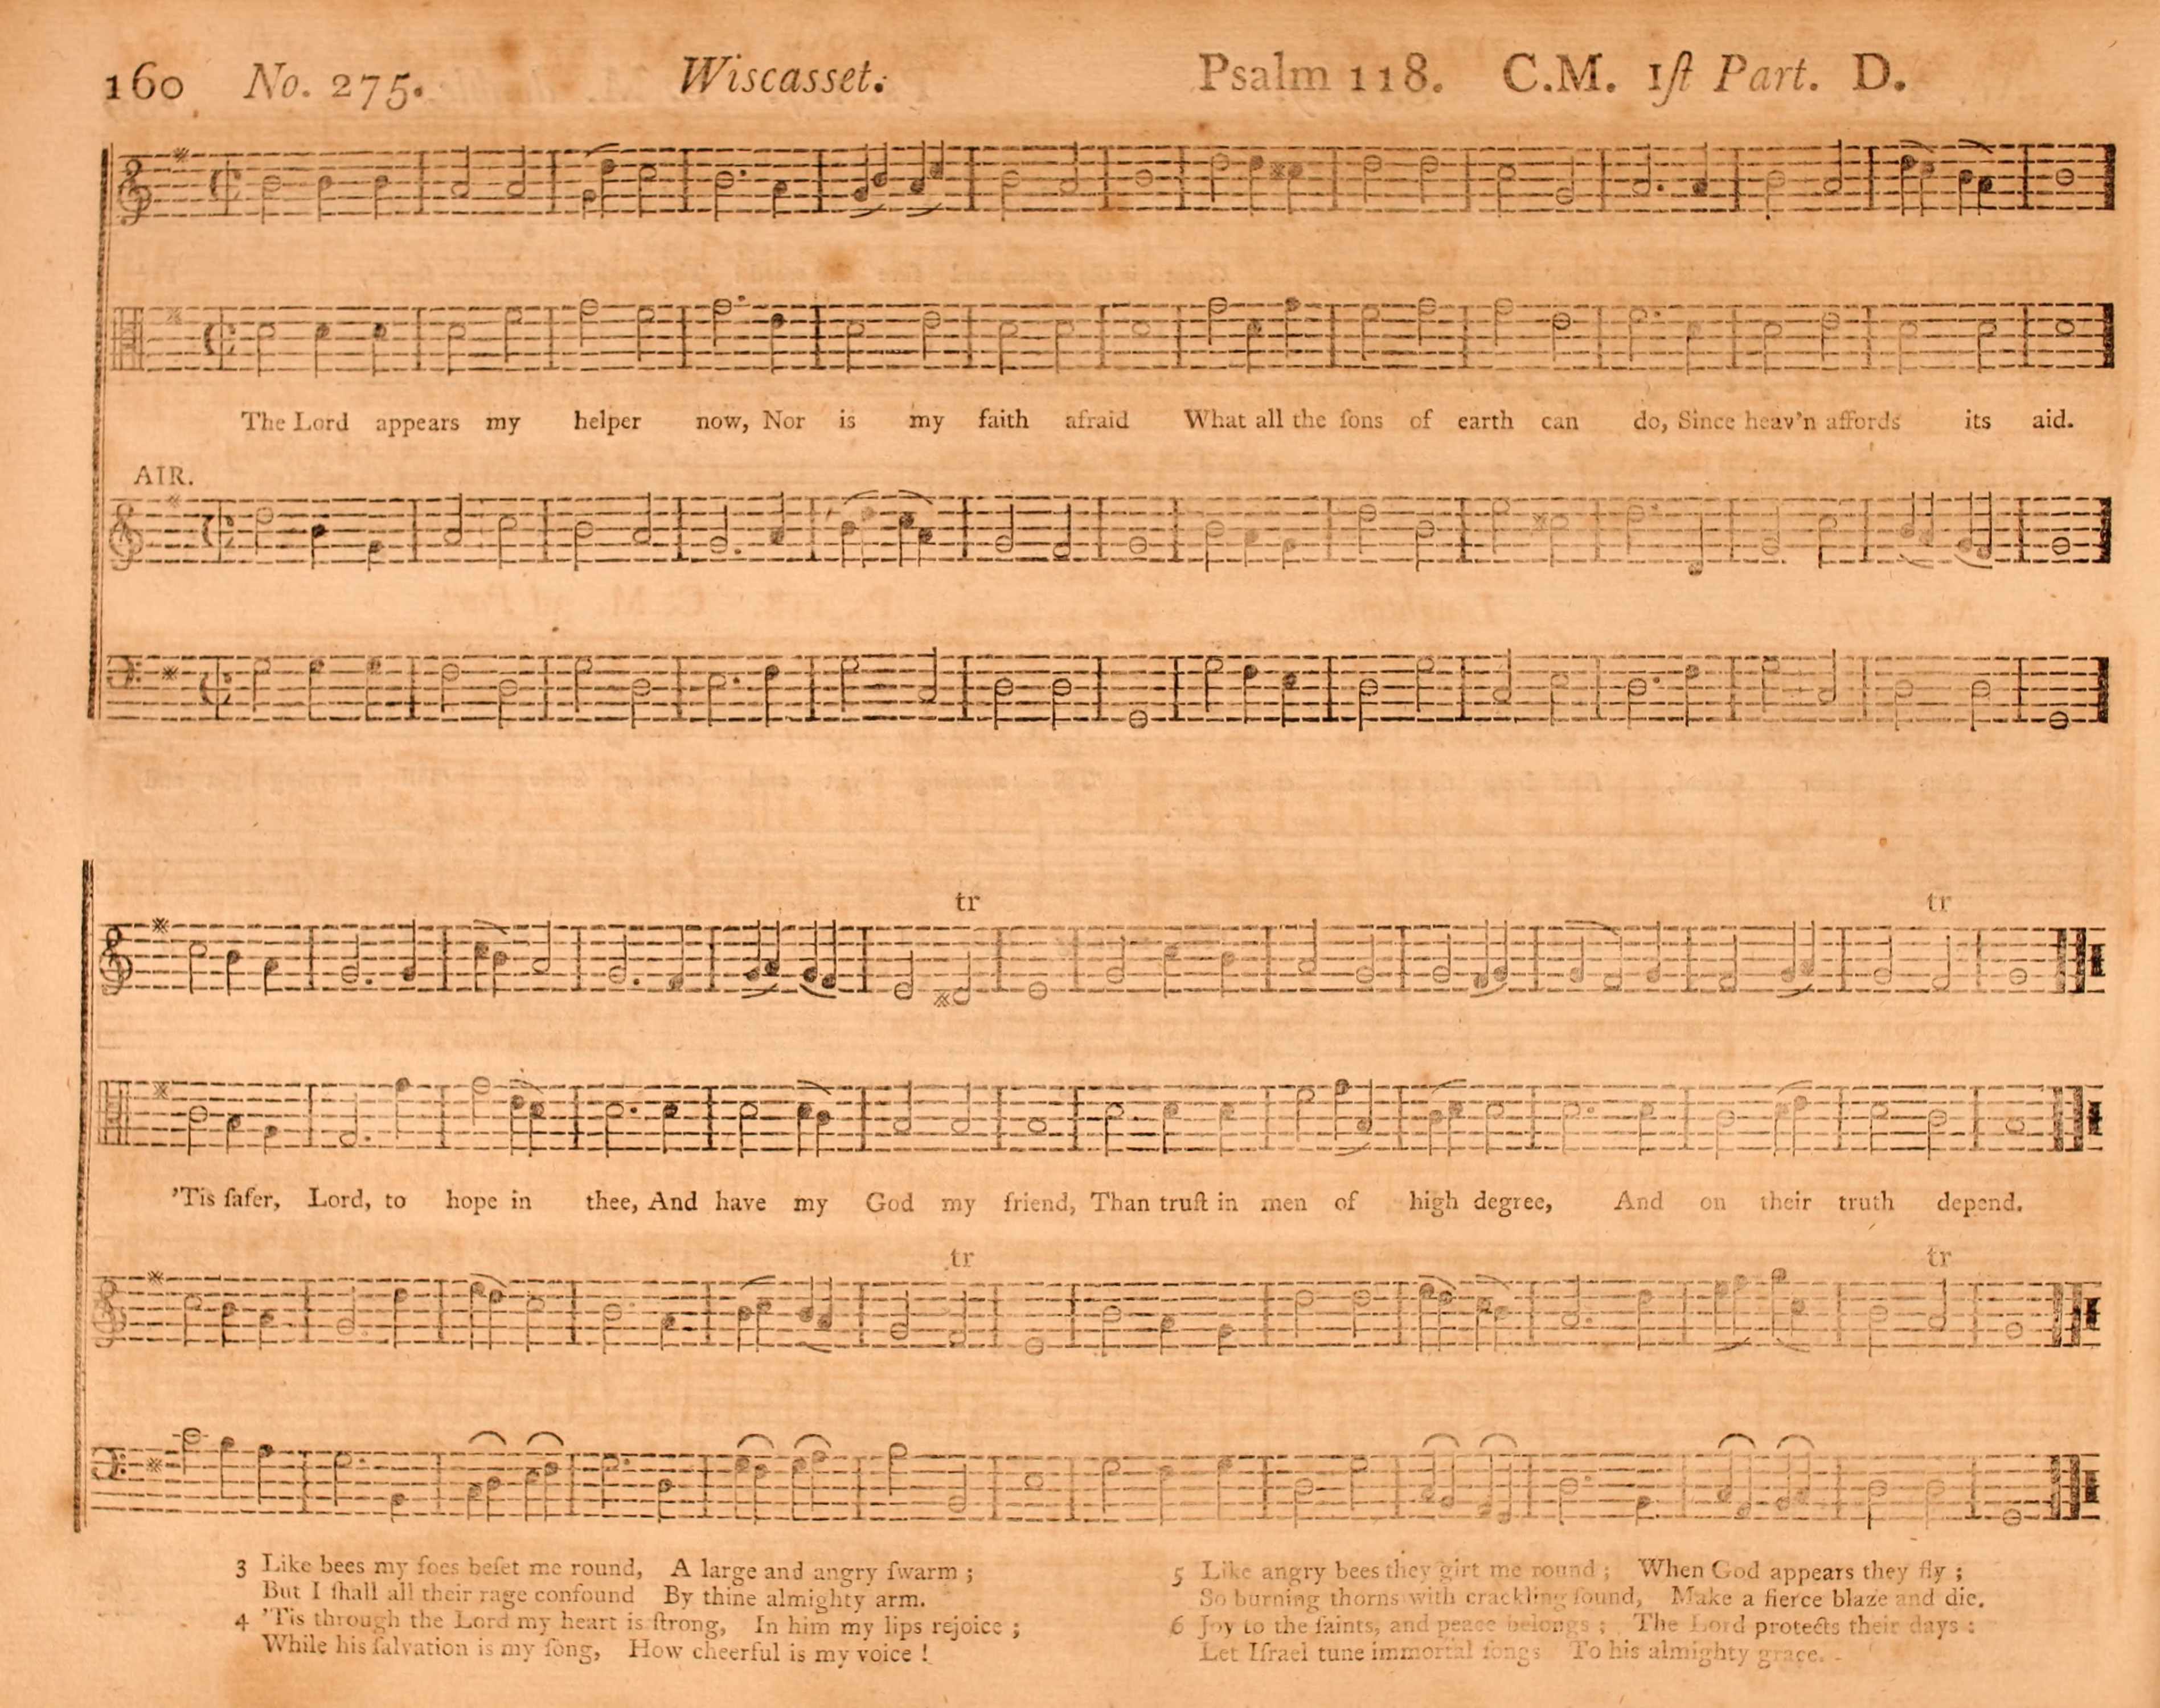 160 No. 275. Wiscasset. Psalm 118. C.M. 1ſt Part. D.
The Lord appears my helper now, Nor is my faith afraid What all the ſons of earth can do, Since heav'n affords its aid.
AIR.
tr tr
'Tis ſafer, Lord, to hope in thee, And have my God my friend, Than truſt in men of high degree, And on their truth depend.
tr tr
3 Like bees my foes beſet me round, A large and angry ſwarm ;
But I ſhall all their rage confound By thine almighty arm.
4 'Tis through the Lord my heart is ſtrong, In him my lips rejoice ;
While his ſalvation is my ſong, How cheerful is my voice !
5 Like angry bees they girt me round ; When God appears they fly ;
So burning thorns with crackling ſound, Make a fierce blaze and die.
6 Joy to the ſaints, and peace belongs ; The Lord protects their days :
Let Iſrael tune immortal ſongs To his almighty grace.